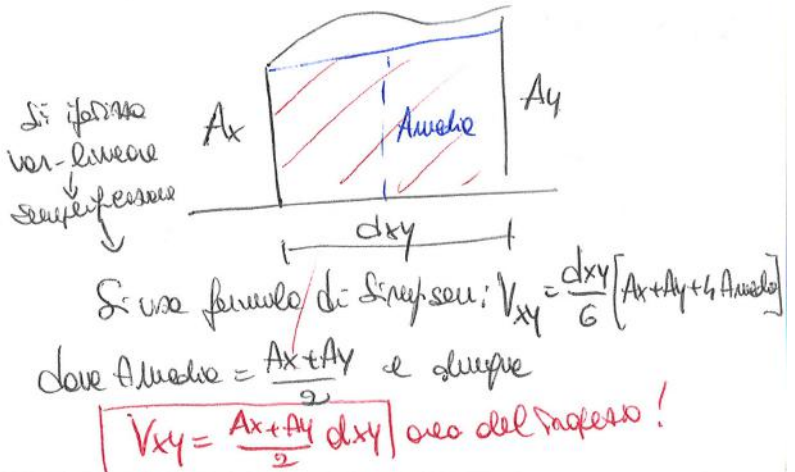 Si ipotizza
var. lineare
semplificazione
Ax
Amedia
Ay
dxy
Si usa formula di Simpson: Vxy = dxy/6 [Ax+Ay+4 Amedia]
dove Amedia = Ax+Ay/2 e dunque
Vxy = Ax+Ay/2 dxy area del trapezio!